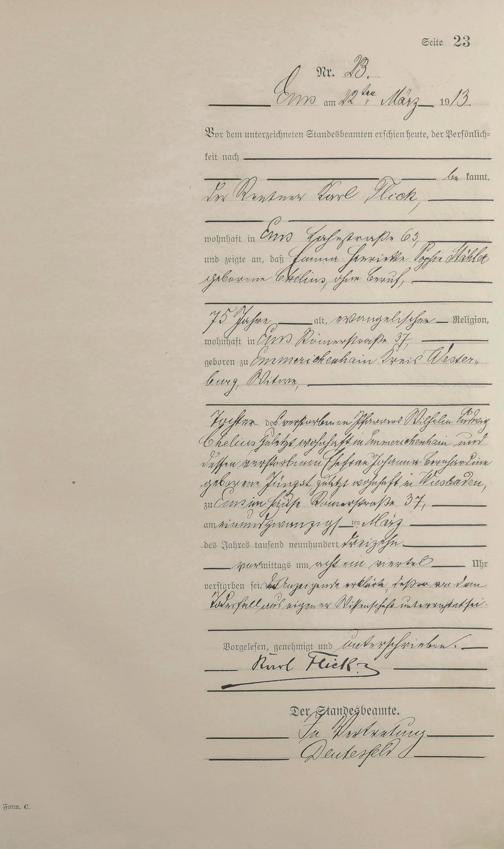 Seite 23
Nr. 23.
Ems am 22ten März 1913.
Vor dem unterzeichneten Standesbeamten erschien heute, der Persönlich-
keit nach
bekannt,
der Rentner Karl Flick,
wohnhaft in Ems Lahnstraße 63,
und zeigte an, daß Emma Henriette Sophie
geborene Chelius, ohne Beruf,
75 Jahre alt, evangelischer Religion,
wohnhaft in Ems Römerstraße 37,
geboren zu Emmerichenhain Kreis Wester-
burg, Witwe,
Tochter des verstorbenen Pfarrers Wilhelm Ludwig
Chelius zuletzt wohnhaft in Emmerichenhain und
dessen verstorbenen Ehefrau Johanna Bernhardine
geborene Jüngst, zuletzt wohnhaft in Wiesbaden,
zu Ems im Hause Römerstraße 37,
am einundzwanzigsten März
des Jahres tausend neunhundert dreizehn
vormittags um acht ein viertel Uhr
verstorben sei. Der Anzeigende erklärte, daß er von dem
Todesfall aus eigener Wissenschaft unterrichtet sei.
Vorgelesen, genehmigt und unterschrieben.
Karl Flick
Der Standesbeamte.
In Vertretung
Form. C.